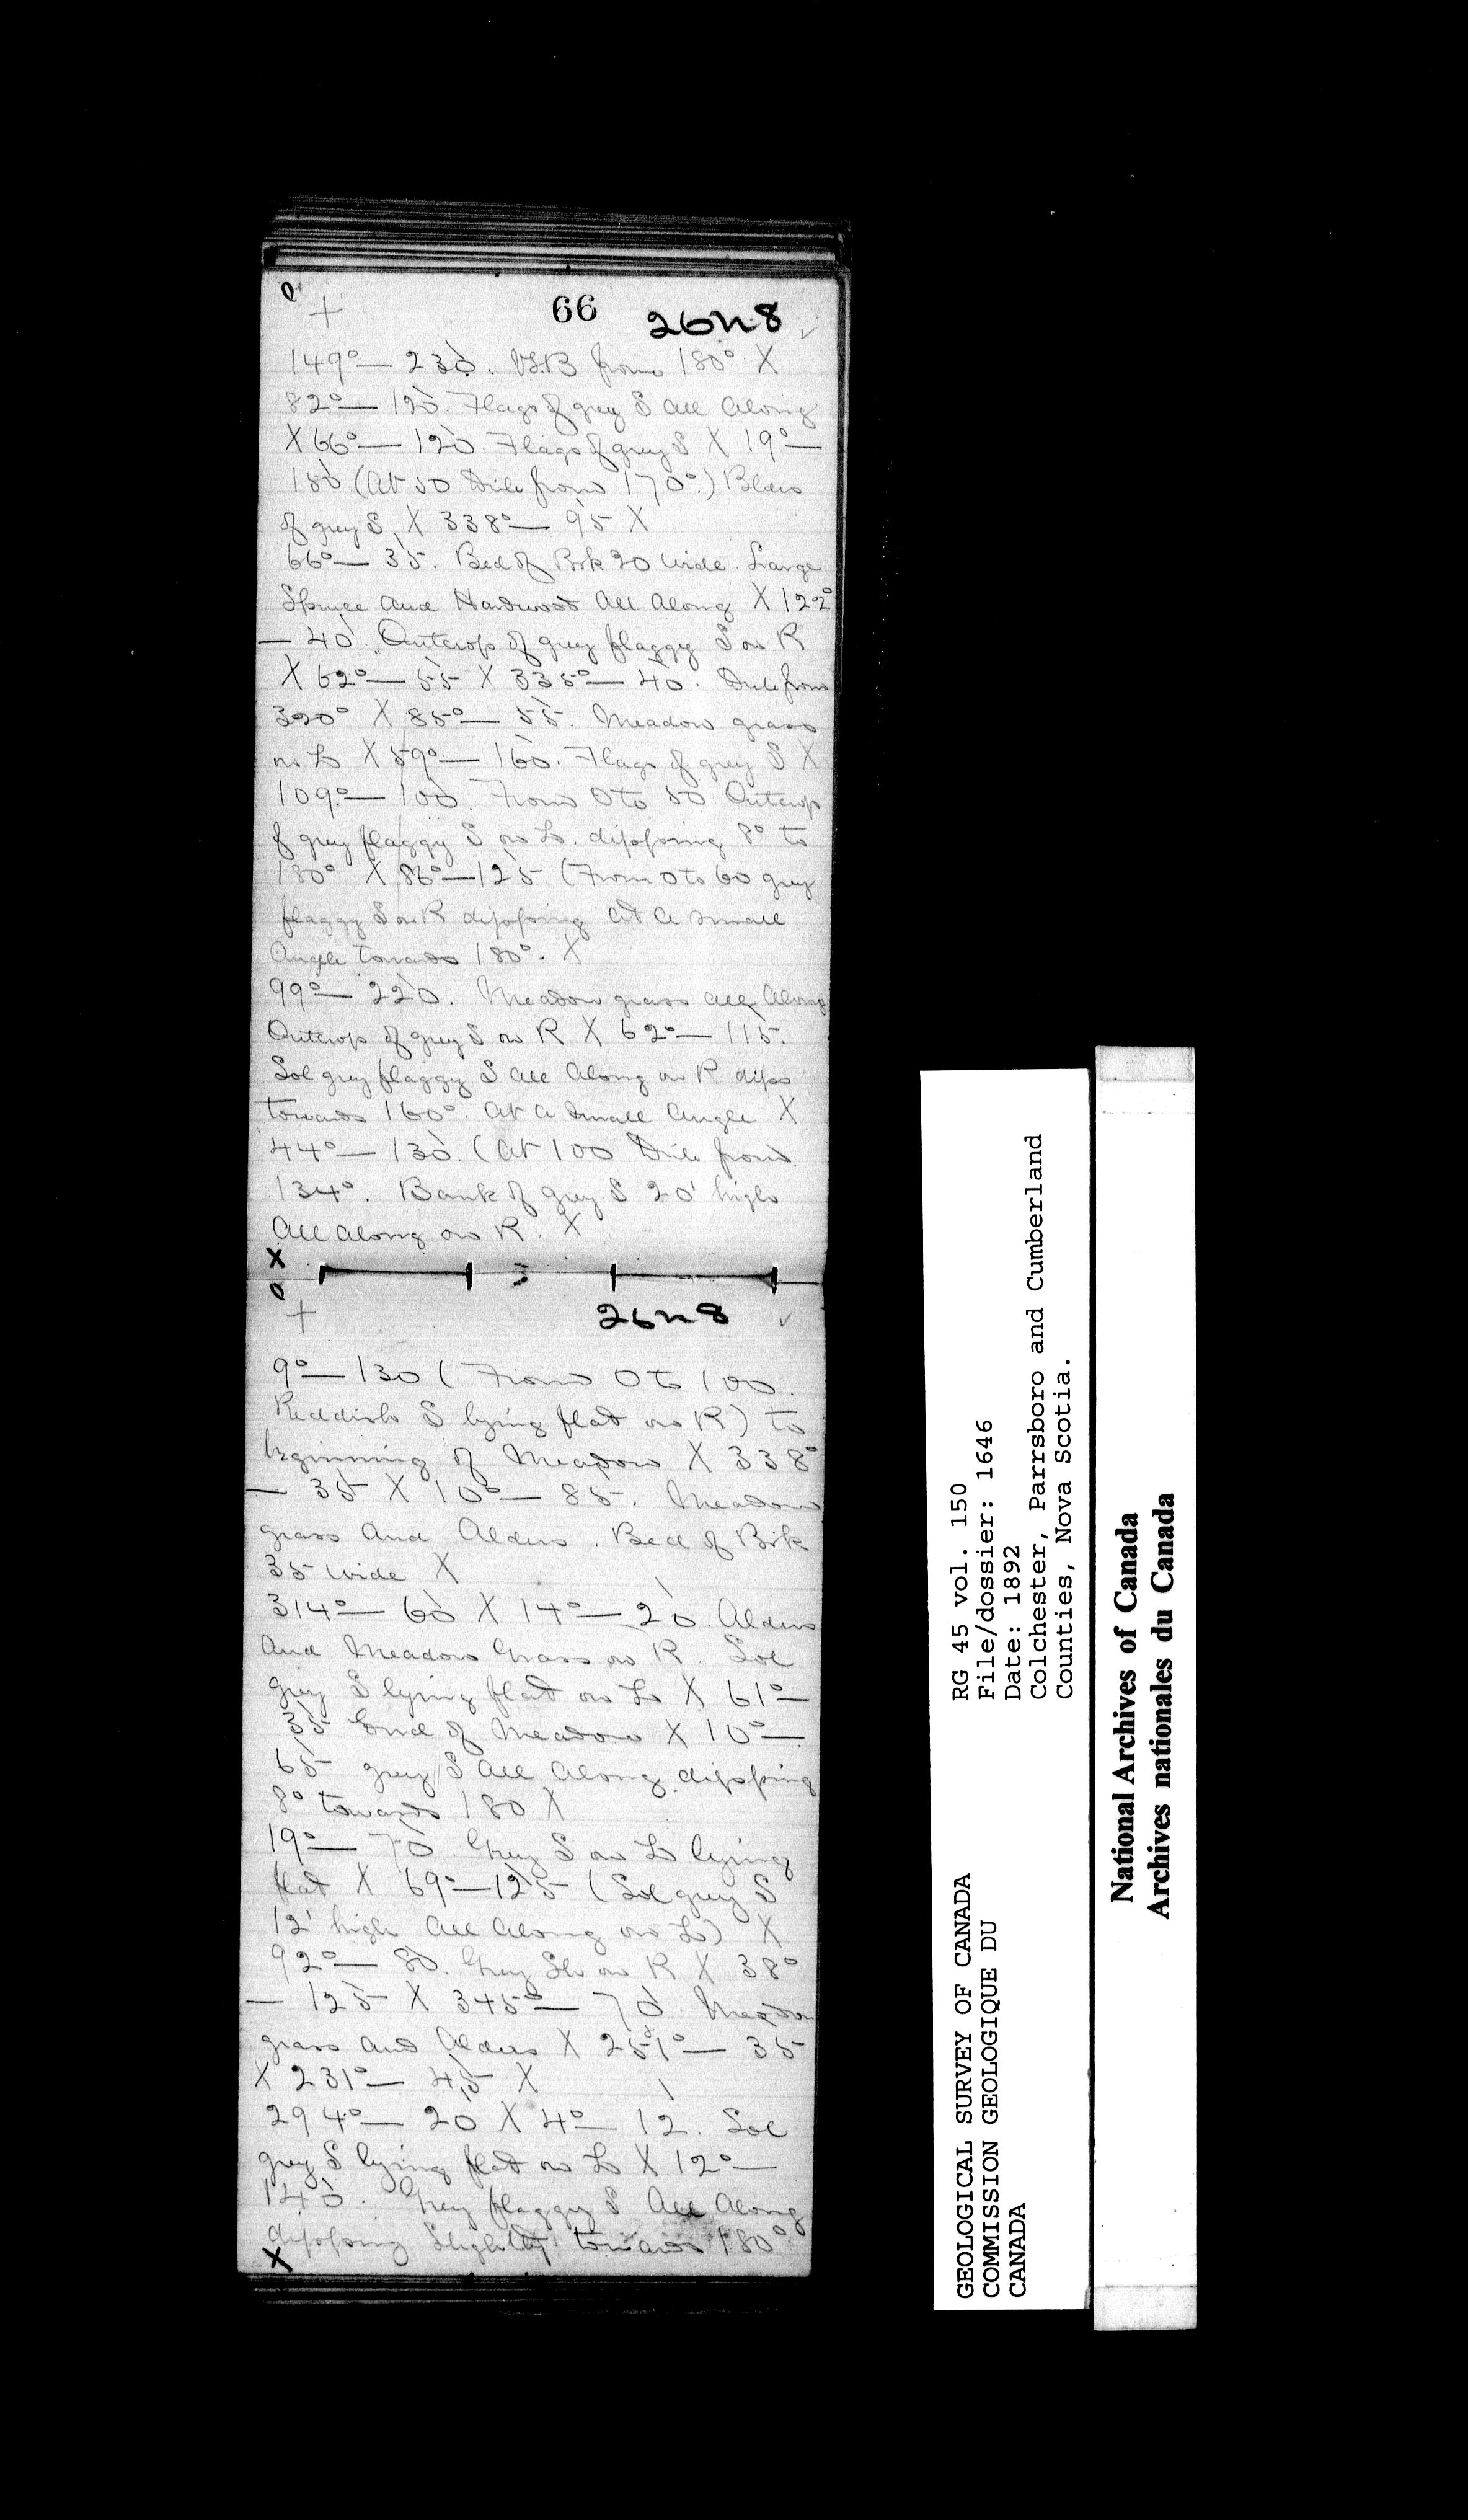 66 26N8
149° — 230. V.S.B from 180° X
82° — 120. Flags of grey S all along
X 66° — 120. Flags of grey S X 19° —
180 (At 50 from 170°.) Bldrs
of grey S. X 338° — 95 X
66° — 35. Bed of Brk 20 wide. Large
Spruce and Hardwood all along X 122°
— 40. Outcrop of grey flaggy S on R
X 62° — 55 X 335° — 40. from
320° X 85° — 55. Meadow grass
on L X 59° — 160. Flags of grey S X
109° — 100. From 0 to 50 Outcrop
of grey flaggy S on L. dipping 8° to
180° X 86° — 125. (From 0 to 60 grey
flaggy S on R dipping at a small
angle towards 180°. X
99° — 220. Meadow grass all along
Outcrop of grey S on R X 62° — 115.
Sol grey flaggy S all along on R dips
towards 160°. At a small angle X
44° — 130. (At 100 from
134°. Bank of grey S 20' high
All along on R. X
X
26N8
9° — 130 (From 0 to 100.
Reddish S lying flat on R) to
beginning of Meadow X 338°
— 35 X 10° — 85. Meadow
grass and Alders. Bed of Brk
35 wide X
314° — 60 X 14° — 20 Alders
and Meadow Grass on R. Sol
grey S lying flat on L X 61° —
35 End of Meadow X 10° —
65 grey S all along dipping
8° towards 180 X
19° — 70 Grey S on L lying
flat X 69° — 125 (Sol grey S
12' high all along on L) X
92° — 80. Grey Sh on R X 38°
— 125 X 345° — 70. Meadow
grass and Alders X 251° — 35
X 231° — 45 X
294° — 20 X 4° — 12. Sol
grey S lying flat on L X 12° —
140. Grey flaggy S all along
dipping slightly towards 180°
X
GEOLOGICAL SURVEY OF CANADA
COMMISSION GEOLOGIQUE DU
CANADA
RG 45 vol. 150
File/dossier: 1646
Date: 1892
Colchester, Parrsboro and Cumberland
Counties, Nova Scotia.
National Archives of Canada
Archives nationales du Canada